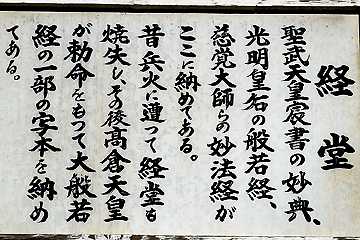 経堂
聖武天皇宸書の妙典、
光明皇后の般若経、
慈覚大師らの妙法経が
ここに納めてある。
昔兵火に遭って経堂も
焼失し、その後高倉天皇
が勅命をもつて大般若
経の一部の写本を納め
てある。